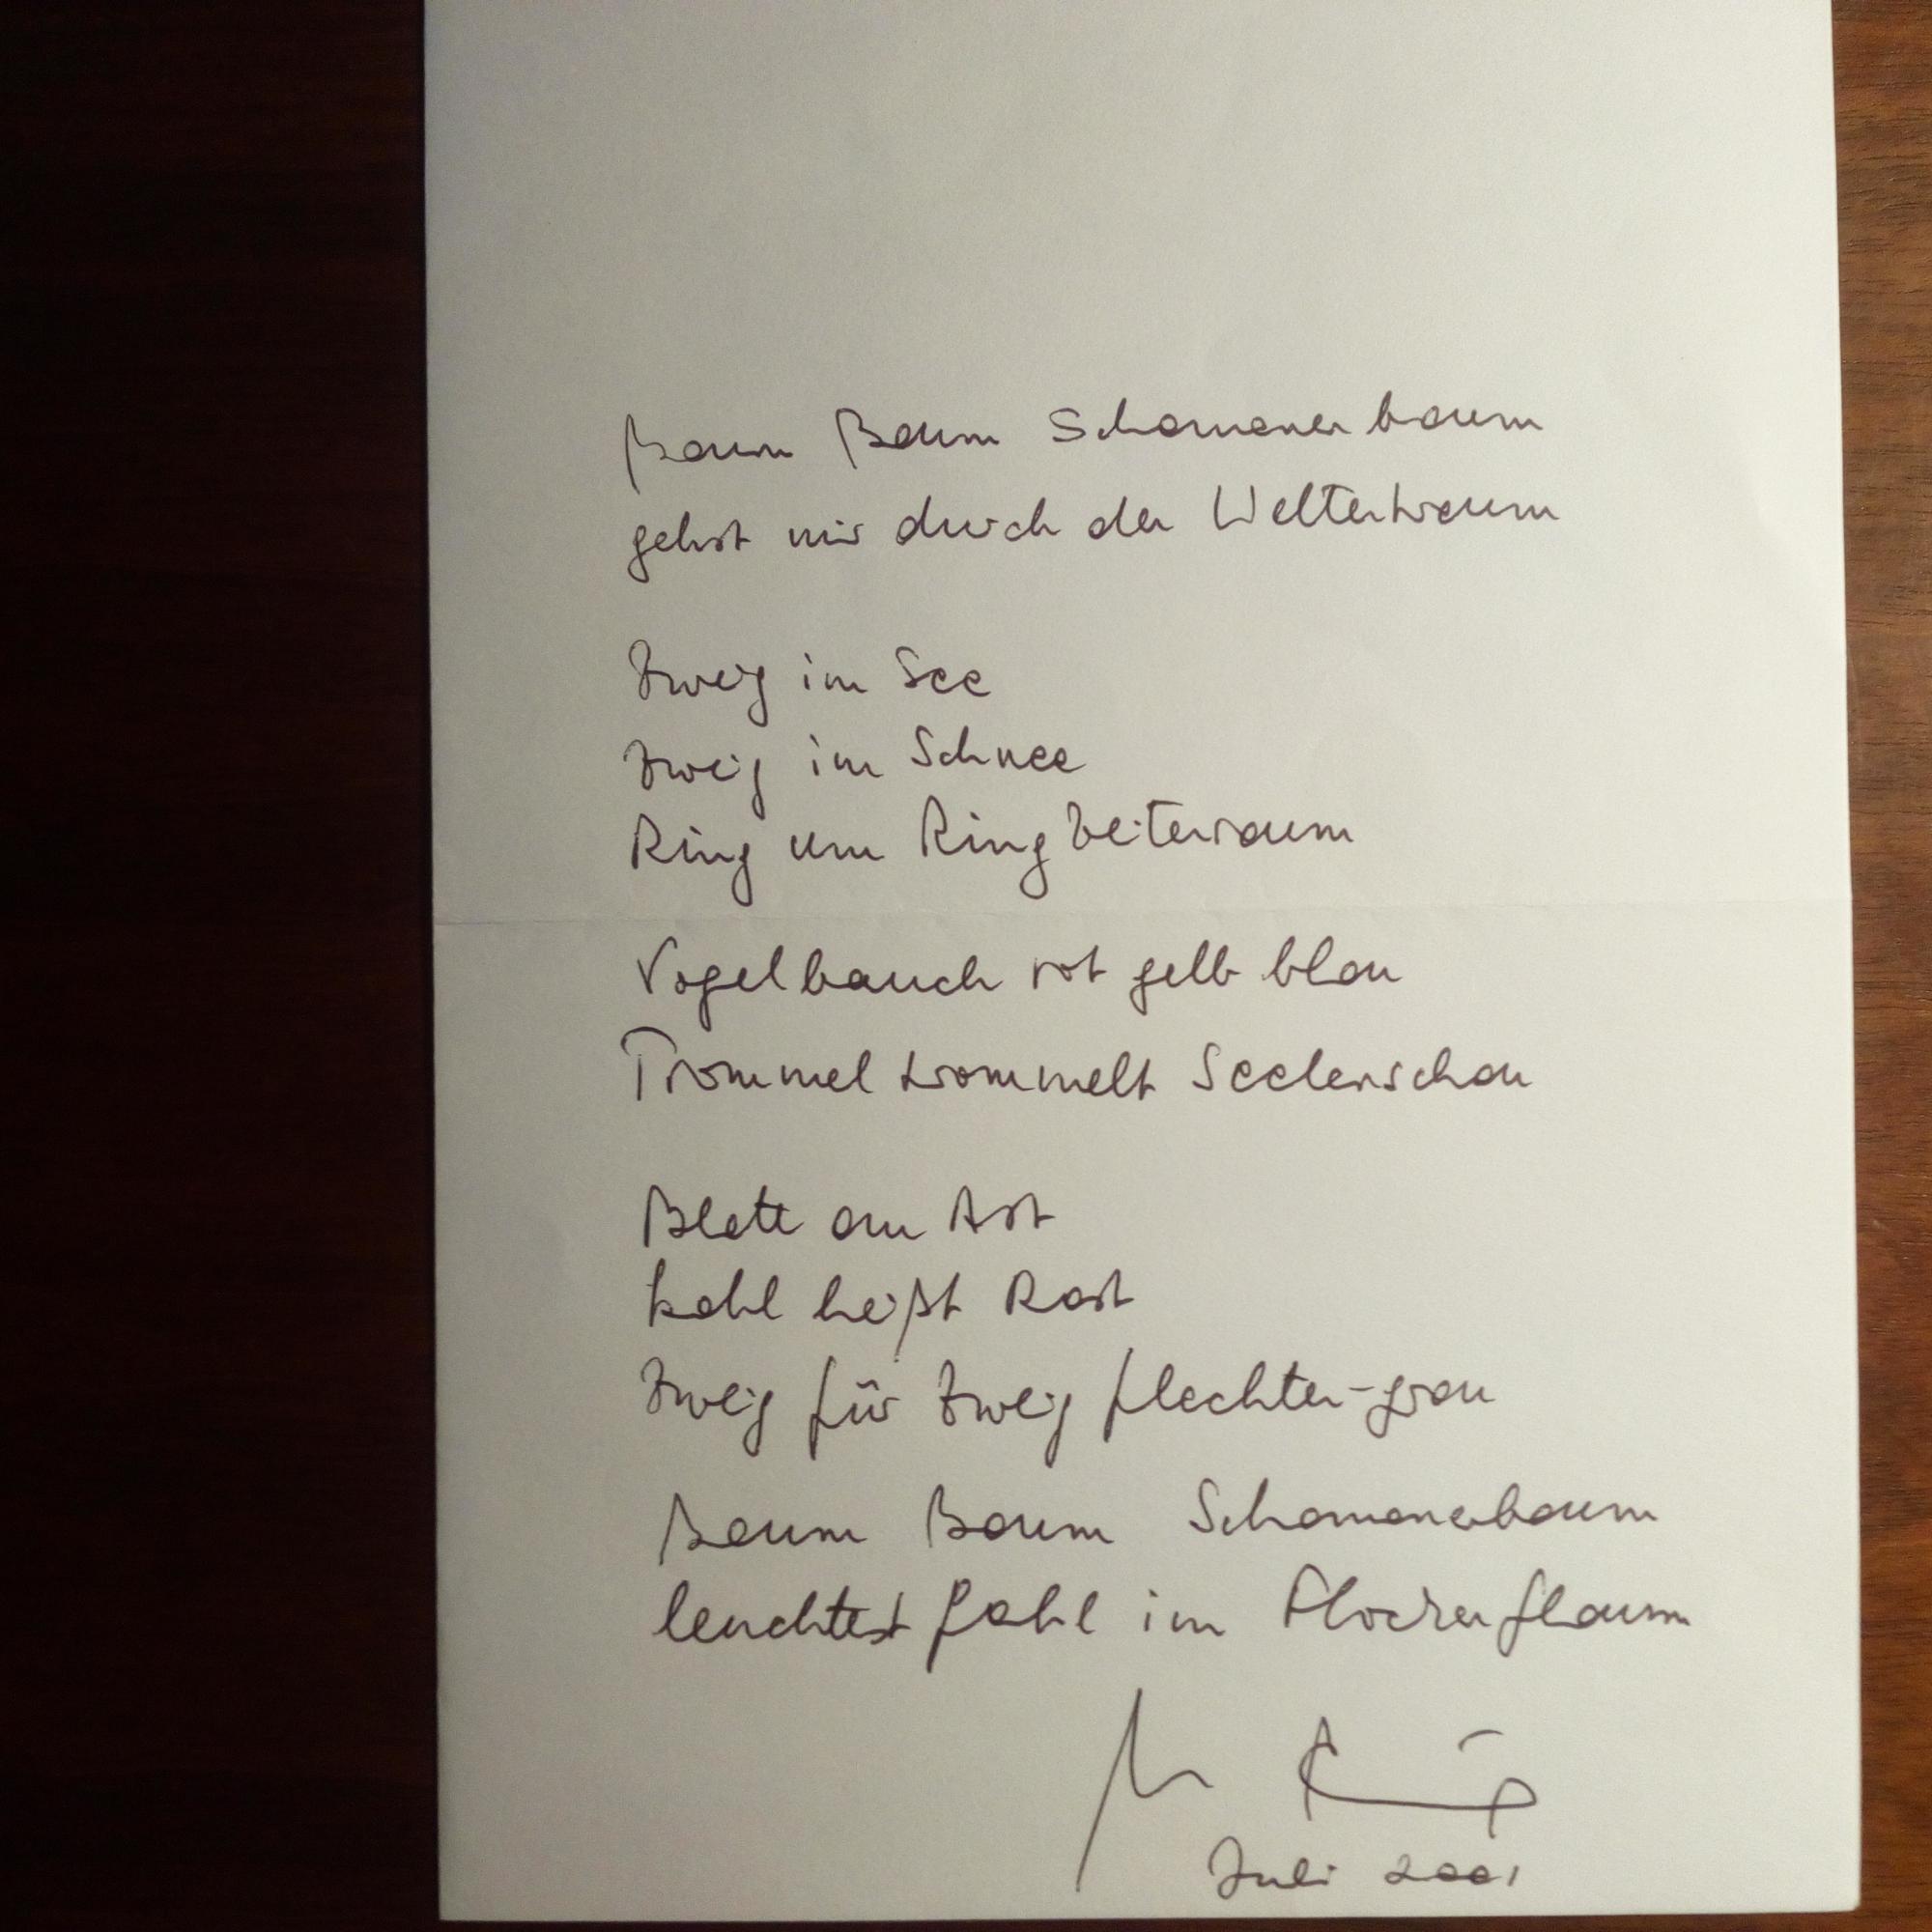 Baum Baum Schamanenbaum
gehst mir durch den Weltentraum
Zweig im See
Zweig im Schnee
Ring um Ring Zeitenraum
Vogelbauch rot gelb blau
Trommel trommelt Seelenschau
Blatt am Ast
kahl heißt Rast
Zweig für Zweig flechten-grau
Baum Baum Schamanenbaum
leuchtest fahl im Flockenflaum
Juli 2001